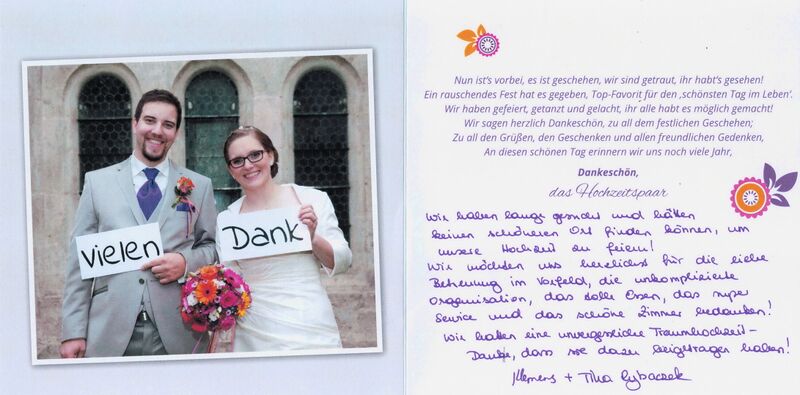 vielen
Dank
Nun ist's vorbei, es ist geschehen, wir sind getraut, ihr habt's gesehen!
Ein rauschendes Fest hat es gegeben, Top-Favorit für den ‚schönsten Tag im Leben'.
Wir haben gefeiert, getanzt und gelacht, ihr alle habt es möglich gemacht!
Wir sagen herzlich Dankeschön, zu all dem festlichen Geschehen;
Zu all den Grüßen, den Geschenken und allen freundlichen Gedenken,
An diesen schönen Tag erinnern wir uns noch viele Jahr,
Dankeschön,
das Hochzeitspaar
Wir haben lange gesucht und hätten
keinen schöneren Ort finden können, um
unsere Hochzeit zu feiern!
Wir möchten uns herzlichst für die liebe
Betreuung im Vorfeld, die unkomplizierte
Organisation, das tolle Essen, das super
Service und das schöne Zimmer bedanken!
Wir hatten eine unvergessliche Traumhochzeit –
Danke, dass sie dazu beigetragen haben!
Klemens + Tina Rybaczek